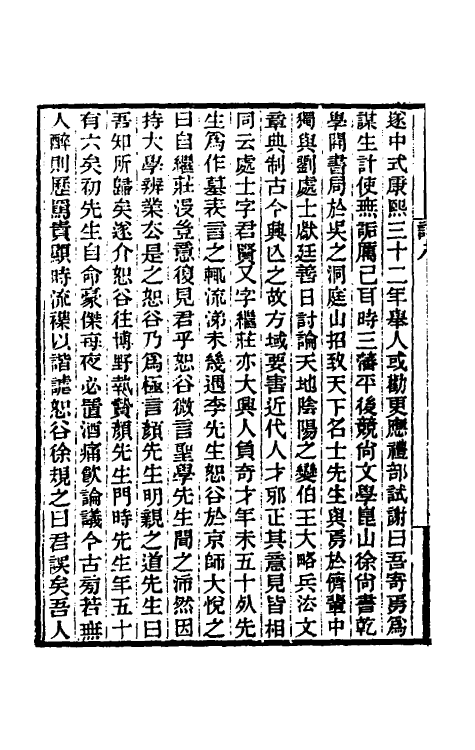 遂中式康熙三十二年舉人或勸更應禮部試謝曰吾寄勇爲
謀生計使無詬厲己耳時三藩平後競尚文學崑山徐尚書乾
學開書局於吳之洞庭山招致天下名士先生與勇於儕輩中
獨與劉處士獻廷善日討論天地陰陽之變伯王大略兵法文
章典制古今興亾之故方域要害近代人才邪正其意見皆相
同云處士字君賢又字繼莊亦大興人負奇才年未五十死先
生爲作墓表言之輒流涕未幾遇李先生恕谷於京師大悅之
曰自繼莊歿豈意復見君乎恕谷微言聖學先生聞之沛然因
持大學辨業公是之恕谷乃爲極言顏先生明親之道先生曰
吾知所歸矣遂介恕谷往博野執贄顏先生門時先生年五十
有六矣初先生自命豪傑每夜必置酒痛飲論議今古旁若無
人醉則歷罵貴顯時流襍以諧謔恕谷徐規之曰君誤矣吾人